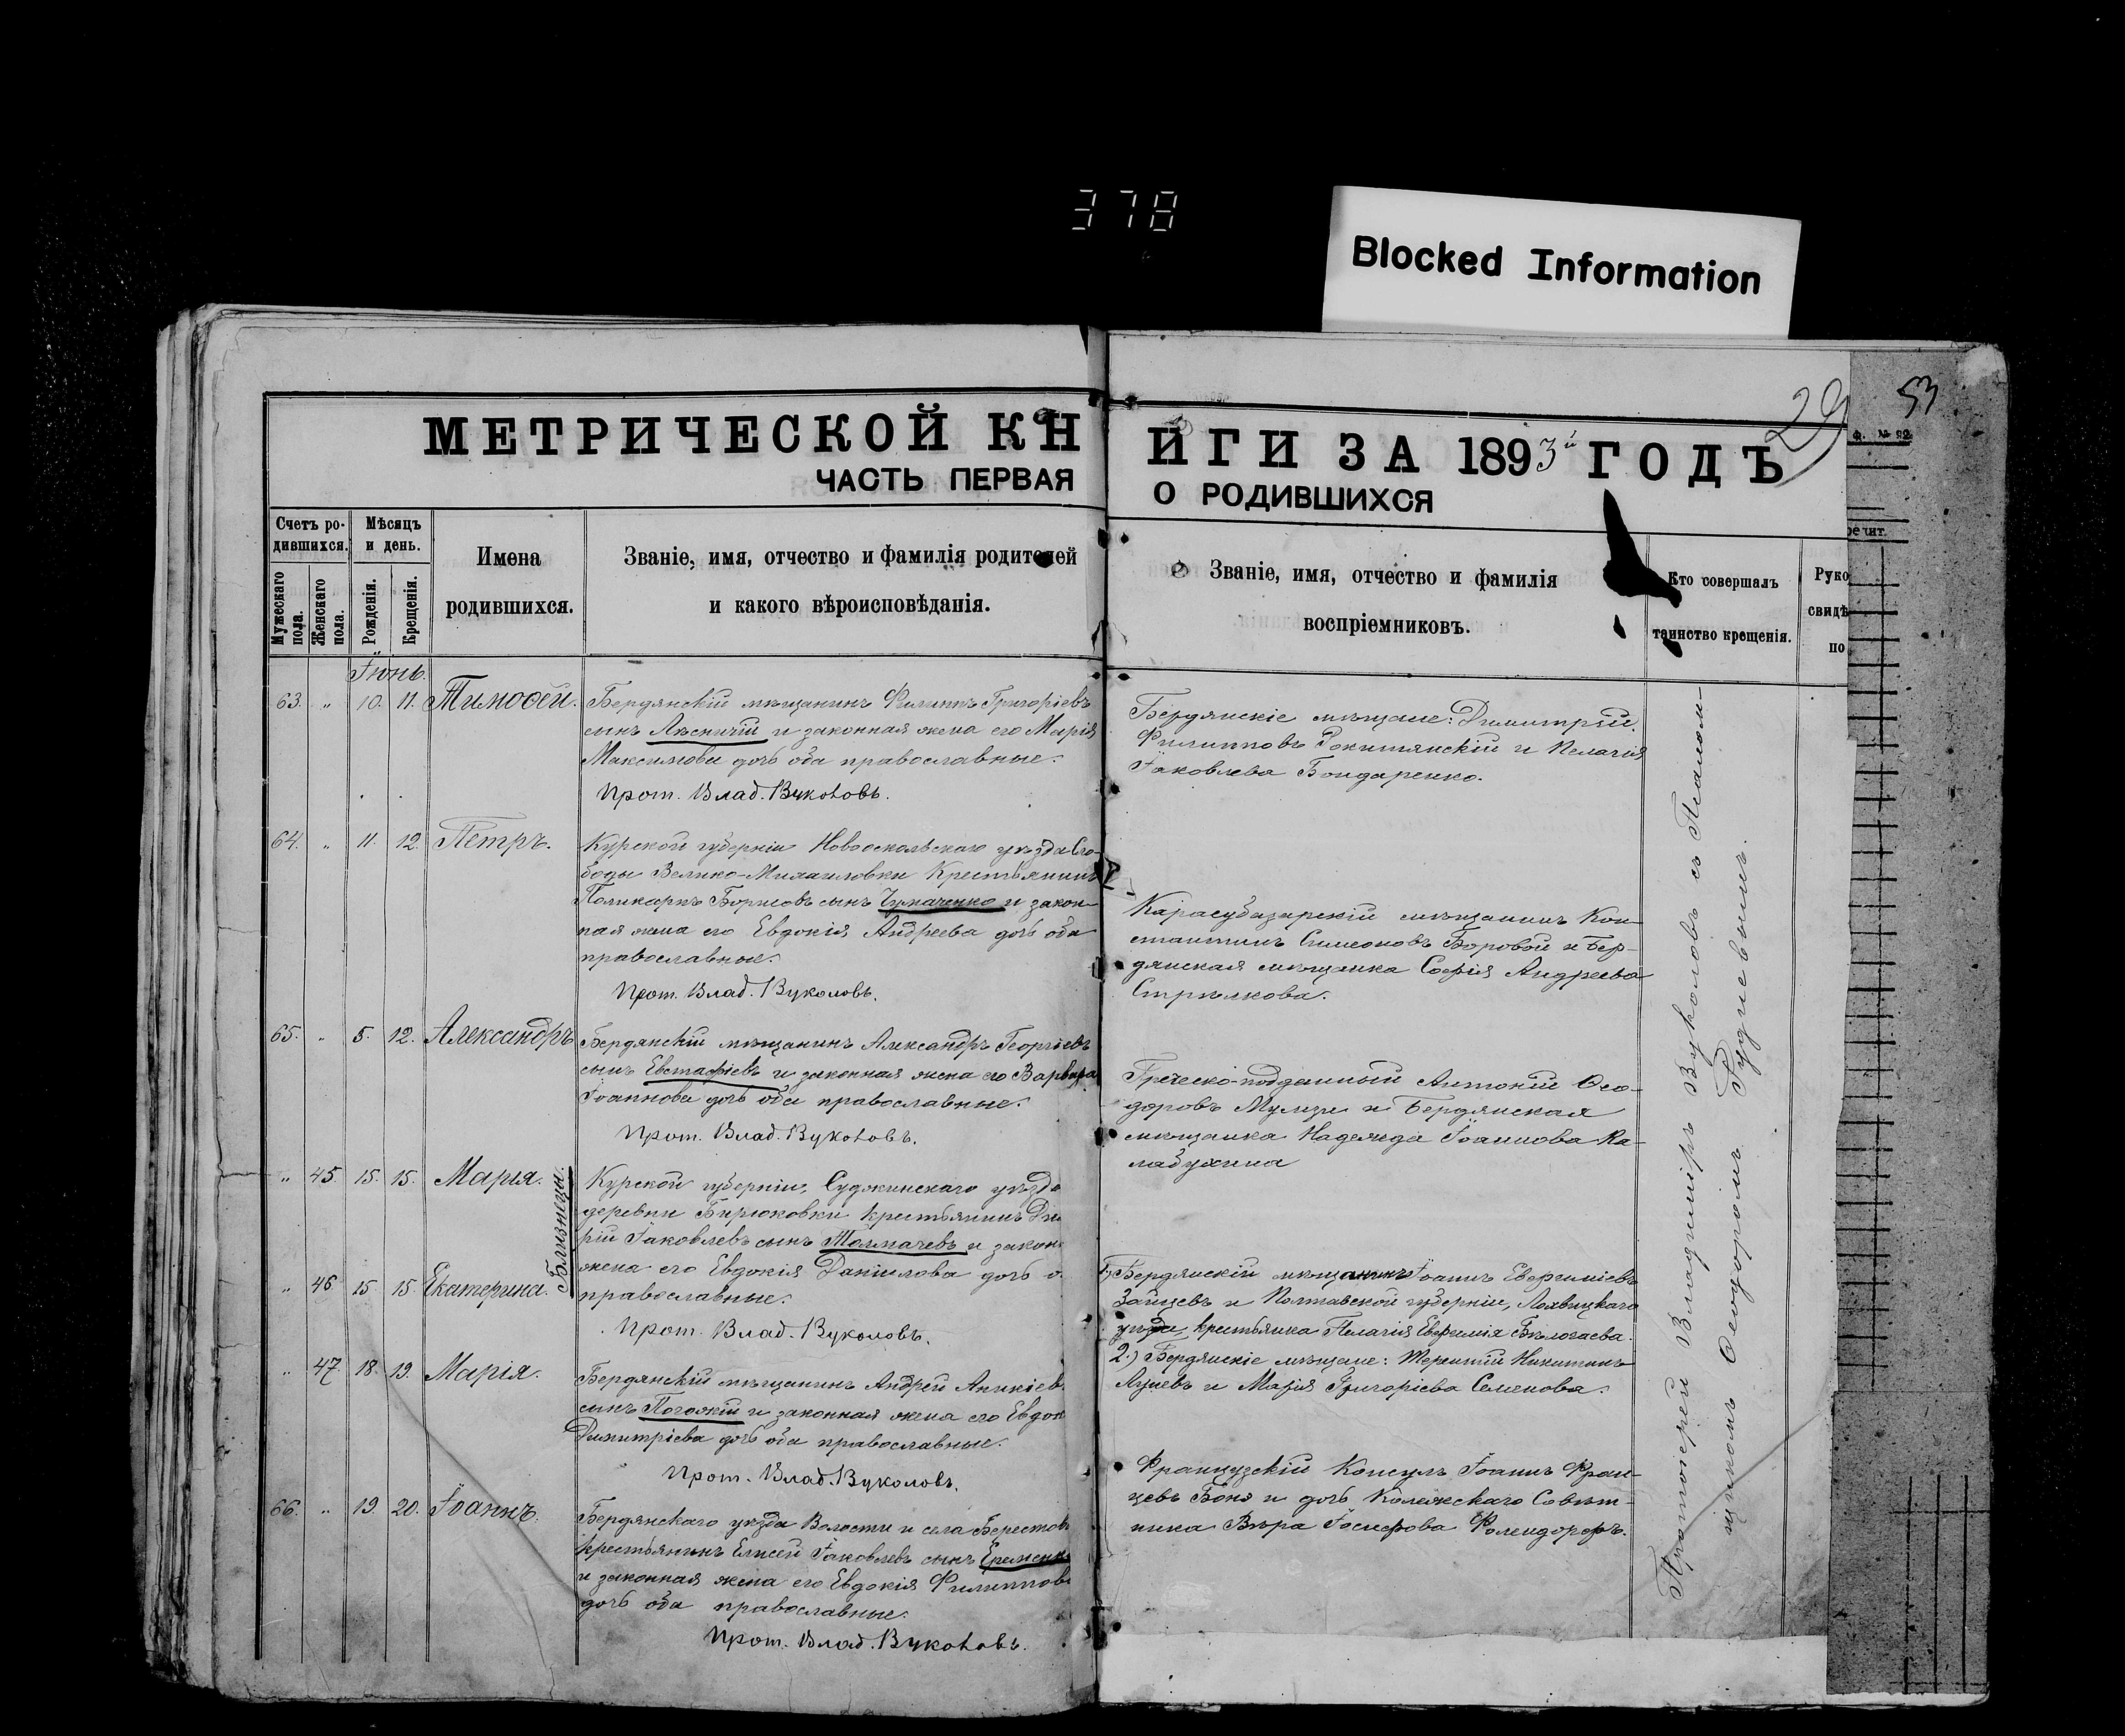 378
Blocked Information
29
53
МЕТРИЧЕСКОЙ КН
ИГИ ЗА 1893й ГОДЪ
ЧАСТЬ ПЕРВАЯ
О РОДИВШИХСЯ
Счетъ ро-
дившихся.
Мужескаго пола.
Женскаго пола.
Мѣсяцъ
и день.
Рожденія.
Крещенія.
Имена
родившихся.
Званіе, имя, отчество и фамилія родителей
и какого вѣроисповѣданія.
Званіе, имя, отчество и фамилія
воспріемниковъ.
Кто совершалъ
таинство крещенія.
Руко
свидѣ
по
Іюнь.
63. „ 10. 11. Тимоѳей.
Бердянскій мѣщанинъ Филиппъ Григоріевъ
сынъ Лѣсничій и законная жена его Марія
Максимова дочь оба православные.
Прот. Влад. Вуколовъ.
Бердянскіе мѣщане: Димитрій
Филипповъ Рокитянскій и Пелагія
Іаковлева Бондаренко.
64. „ 11. 12. Петръ.
Курской губерніи Новооскольскаго уѣзда Сло-
боды Велико-Михайловки Крестьянинъ
Поликарпъ Борисовъ сынъ Чумаченко и закон-
ная жена его Евдокія Андреева дочь оба
православные.
Прот. Влад. Вуколовъ.
Карасубазарскій мѣщанинъ Кон-
стантинъ Симеоновъ Боровой и Бер-
дянская мѣщанка Софія Андреева
Стрѣлкова.
65. „ 5. 12. Александръ
Бердянскій мѣщанинъ Александръ Георгіевъ
сынъ Евстафіевъ и законная жена его Варвара
Іоаннова дочь оба православные.
Прот. Влад. Вуколовъ.
Греческо-подданный Антоній Ѳео-
доровъ и Бердянская
мѣщанка Надежда Іоаннова Ка-
лабухина
„ 45. 15. 15. Марія.
Близнецы.
„ 46 15. 15. Екатерина.
Курской губерніи, Суджинскаго уѣзда
деревни Бирюковки крестьянинъ Ди
рій Іаковлевъ сынъ Толмачевъ и закон
жена его Евдокія Даніилова дочь о
православные.
Прот. Влад. Вуколовъ.
1) Бердянскій мѣщанинъ Іоаннъ
Зайцевъ и Полтавской губерніи, Лохвицкаго
уѣзда, крестьянка Пелагія
2.) Бердянскіе мѣщане: Терентій Никитинъ
и Марія Григоріева Семенова.
„ 47. 18. 19. Марія.
Бердянскій мѣщанинъ Андрей Аникіев
сынъ Погожій и законная жена его Евдок
Димитріева дочь оба православные.
Прот. Влад. Вуколовъ.
Французскій Консулъ Іоаннъ Фран-
цевъ и дочь Коллежскаго Совѣт-
ника Вѣра Іосифова
66. „ 19. 20. Іоаннъ.
Бердянскаго уѣзда Волости и села Берестов
крестьянинъ Елисей Іаковлевъ сынъ Еременк
и законная жена его Евдокія Филиппов
дочь оба православные.
Прот. Влад. Вуколовъ.
Протоіерей Владиміръ Вуколовъ съ Псалом-
щикомъ Ѳеодоромъ Рудневымъ.